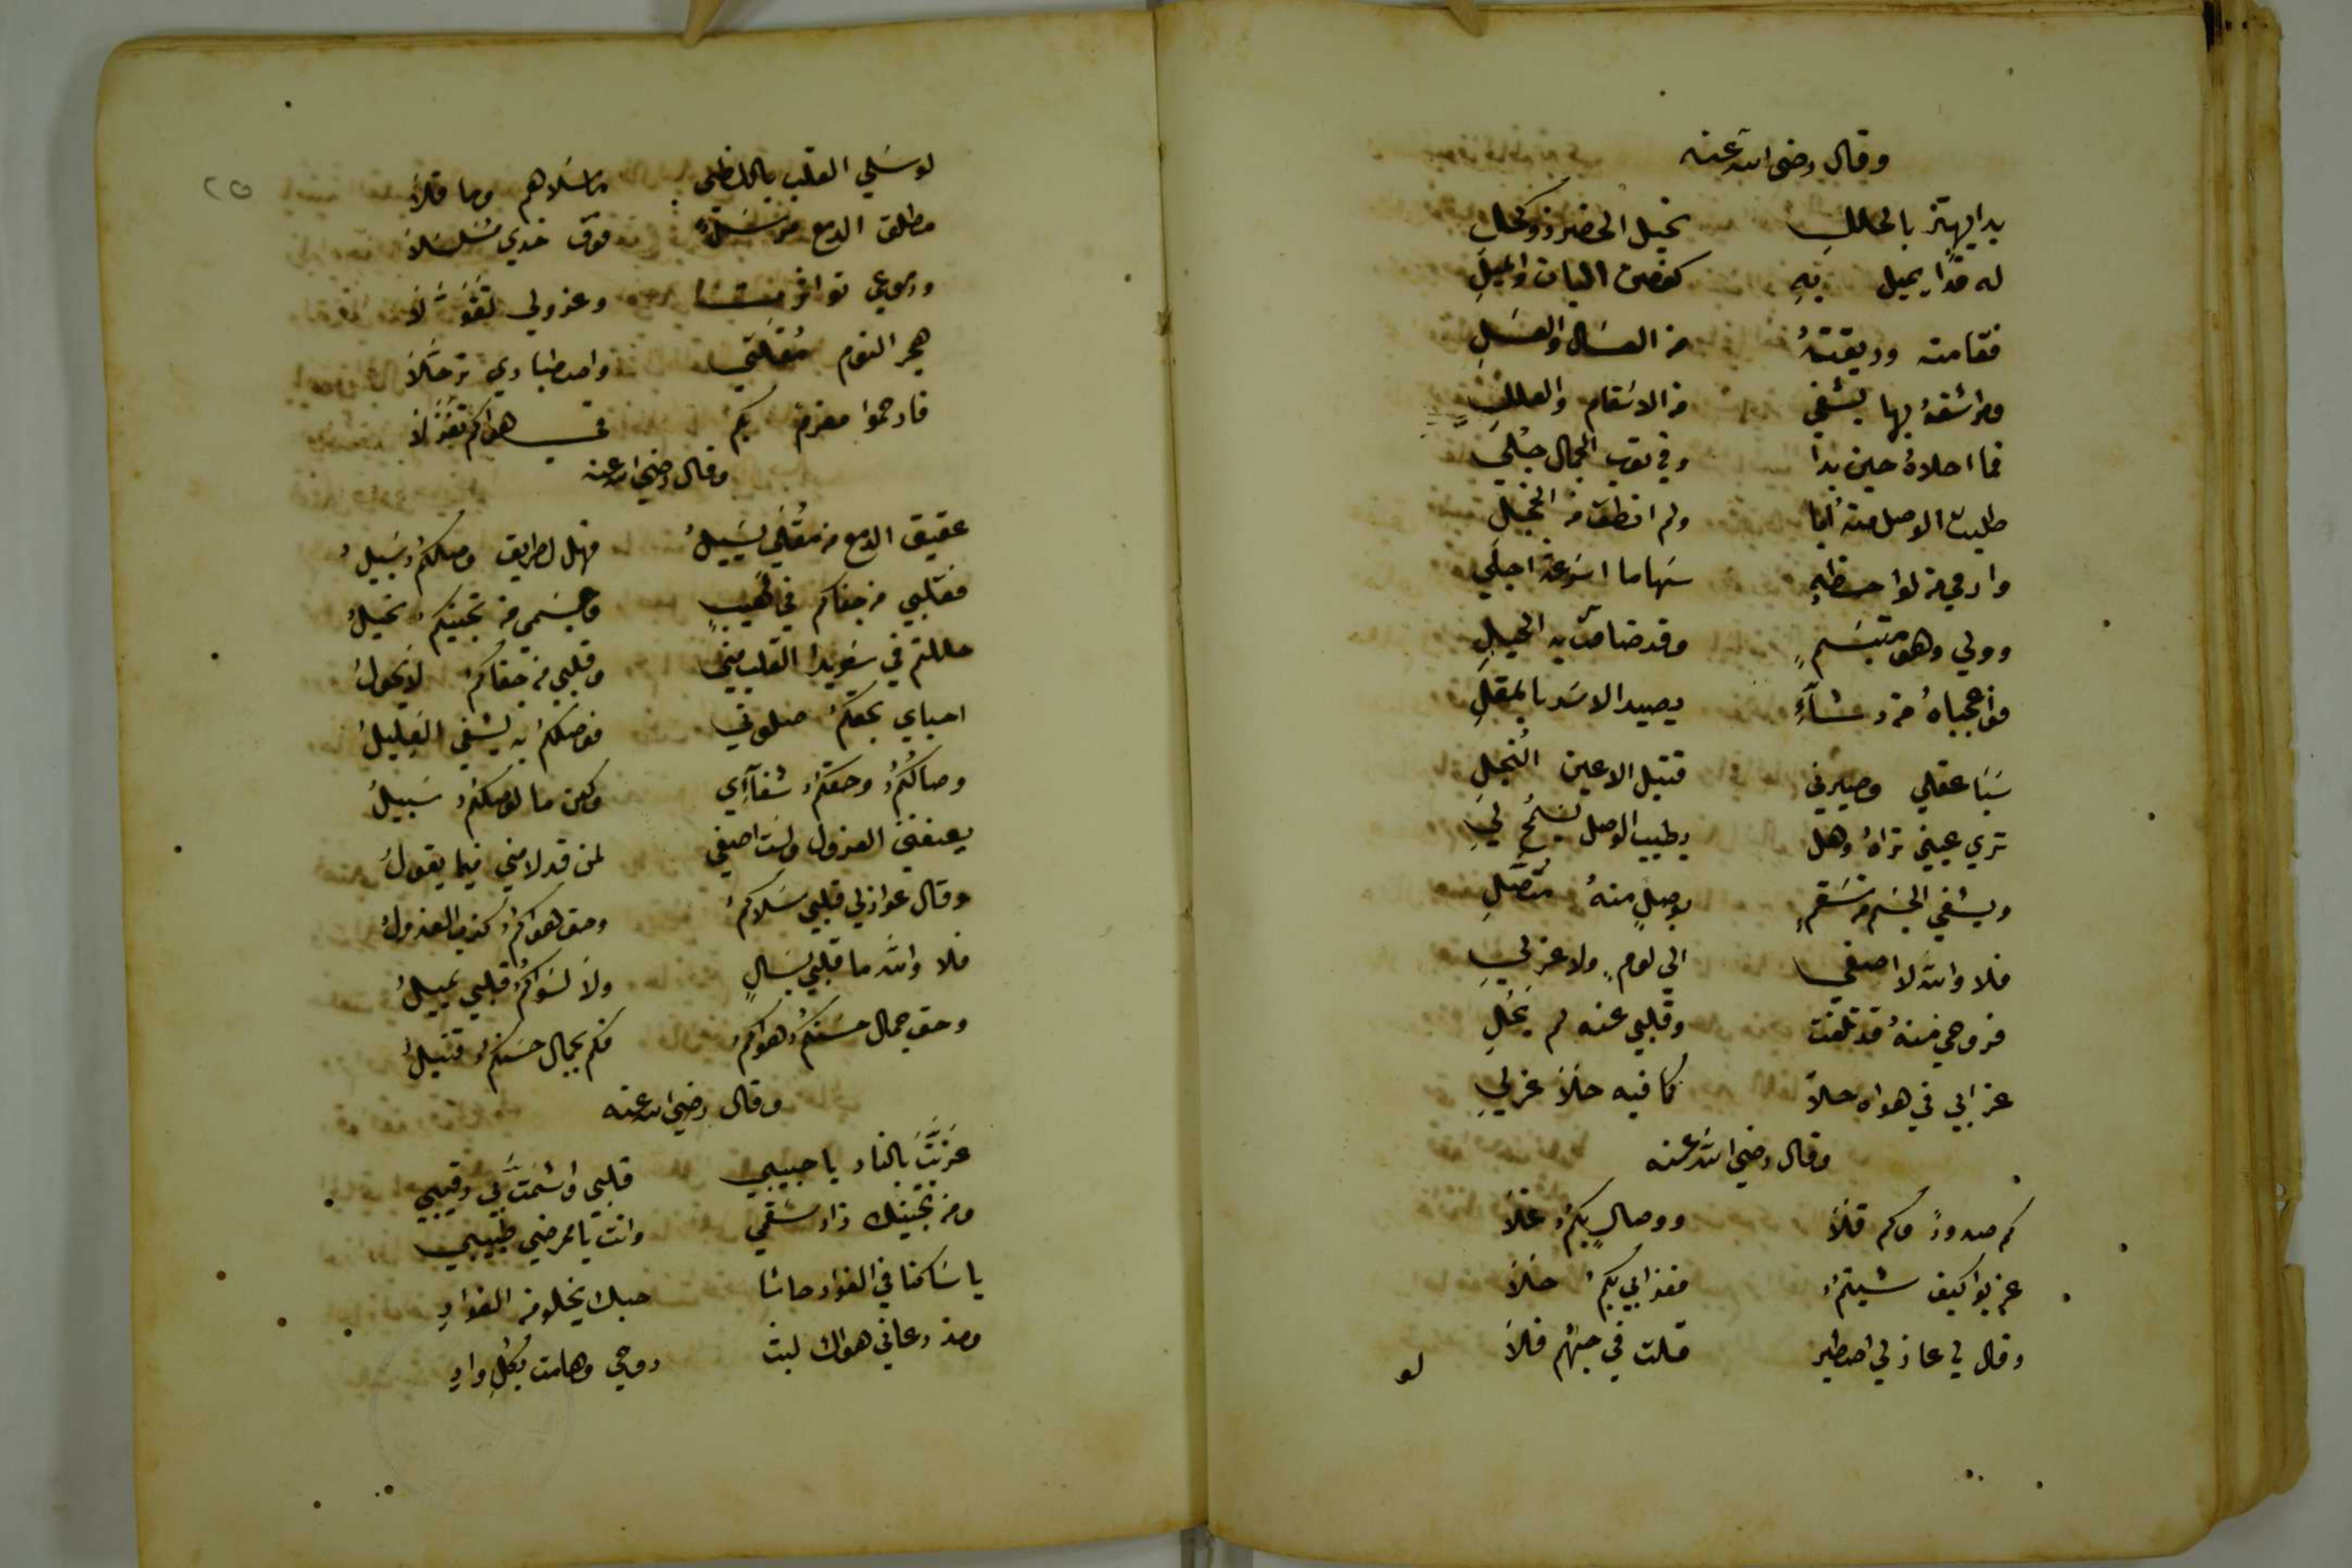 وقال رضى الله عنه
بدا يهتز بالحللِ نحيل الخضر ذو كحلِ
له قدًا يميل بهِ كغصن البان والميلِ
فقامته وريقتهُ من العسال والعسَلِ
مراشفهُ بها يشفي من الاسقام والعللِ
فما احلاهُ حين بدا وفي ثوب الجمال جُلي
طلبت الوصل منهُ ابا ولم انطق من الخجلِ
وارمي من لواحظهِ سهاما اسرعة اجلي
وولي وهو متبسمٍ وقد ضاقت به الحيلِ
فواعجباهُ من رشاءٍ يصيد الاسد بالمقلِ
سَبَا عقلي وصيرني قتيل الاعين النُجلِ
تري عيني تراهُ وهل بطيب الوصل يسمح ليِ
ويشفي الجسم من سَقمٍ بوصلٍ منهُ متصّلِ
فلا والله لا اصغي الي لومٍ ولا عزلي
فروحي منهُ قد تلفت وقلبي عنه لم يَحُلِ
عزابي في هواه حلاً كما فيه حَلاَ غزليِ
وقال رضي الله عنه
كم صدودً وكم قَلاَ ووصالٍ بكمُ غلاَ
عزبوا كيف شيتمُ فعذابي بكمُ حَلاَ
وقال لي عاذلي اصطبر قلت في حبهُم فلاَ
لو
٢٥
لو سَلي القلب باللظي ما سَلاهم وما قلاَ
مطلق الدمع مرسَلٌ فوق خدي مسُلسَلاَ
ودموعي تواترت وعزولي تقَوّلاَ
هجر النوم مُقلَتي واصطباري ترحّلاَ
فارحموا مغرمٌ بكم في هواكم تغَزّلاَ
وقال رضي الله عنه
عقيق الدمع من مُقلَي يَسيلُ فهل لطريق وصلكمُ سَبيلُ
فقلبي من جفاكم في لَهيبٍ وجسَمي من تجنيكمُ نحيلُ
حللتم في سَويدا القلب مني وقلبي من جفاكمُ لايحولُ
احباي بحقكمُ صلوني فوصلكمُ به يشفي الغليلُ
وصالكُمُ وحقكمُ شفاآي ولكن ما لوصلكمُ سَبيلُ
يعنفني العزول ولست اصغي لمن قد لامني فيما يقولُ
وقال عواذلي قلبي سَلاكمُ وحق هواكمُ كذب العذولُ
فلا والله ما قلبي بسَالٍ ولاَ لسَواكمُ قلبي يميلُ
وحق جمال حسنكمُ وهواكمُ فكم بجمال حسنكمُ قتيلُ
وقال رضي الله عنه
عَزبّتَ بالنار يا حبيبي قلبي واشمَتَّ بي رقيبي
ومن تجنيك زاد سَقمي وانت يا ممرضي طبيبي
يا سَاكنا في الفواد حاشا حبك يخلو من الفوادِ
ومذ دعاني هواك لبت روحي وهامت بكُلِ وادِ